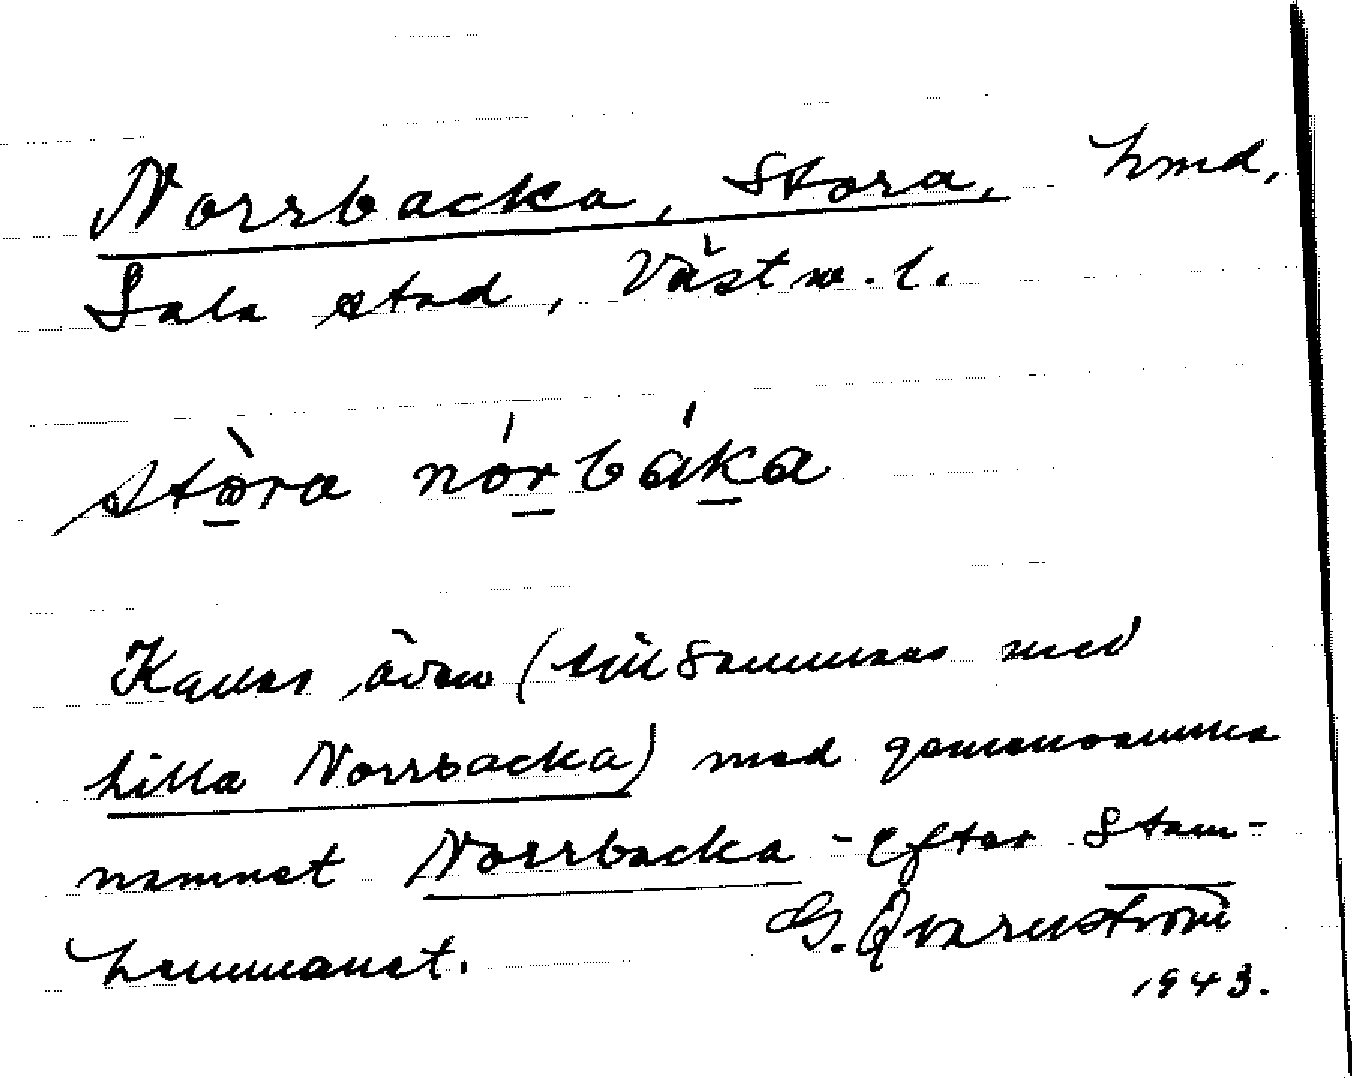 Norrbacka, Stora, hmd,
Sala stad, Västm. l.
stòra nórbáka
Kallas även (tillsammans med
Lilla Norrbacka) med gemensamma
namnet Norrbacka - efter Stam-
hemmanet. G. Qvarnström
1943.